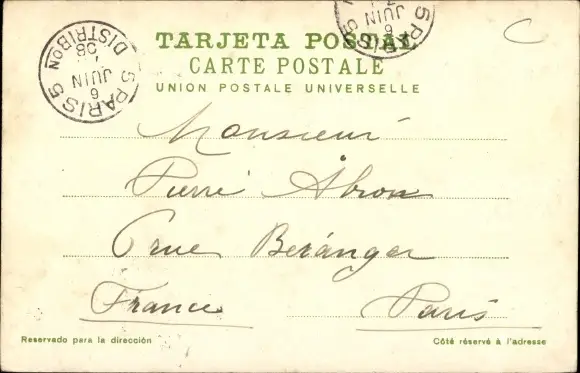 TARJETA POSTAL
CARTE POSTALE
UNION POSTALE UNIVERSELLE
PARIS 5
DISTRIBON
6
JUIN
08
5
6
JUIN
C
Monsieur
Pierre Abron
6 rue Béranger
France Paris
Reservado para la dirección
Côté réservé à l'adresse